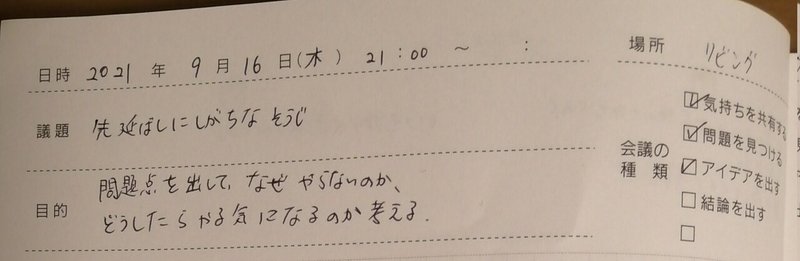 日時 2021 年 9 月 16 日(木) 21:00 ～ :
場所 リビング
議題 先延ばしにしがちな そうじ
目的 問題点を出して、なぜ やらないのか、
どうしたら やる気になるのか 考える.
会議の
種類
☑ 気持ちを共有する
☑ 問題を見つける
☑ アイデアを出す
☐ 結論を出す
☐